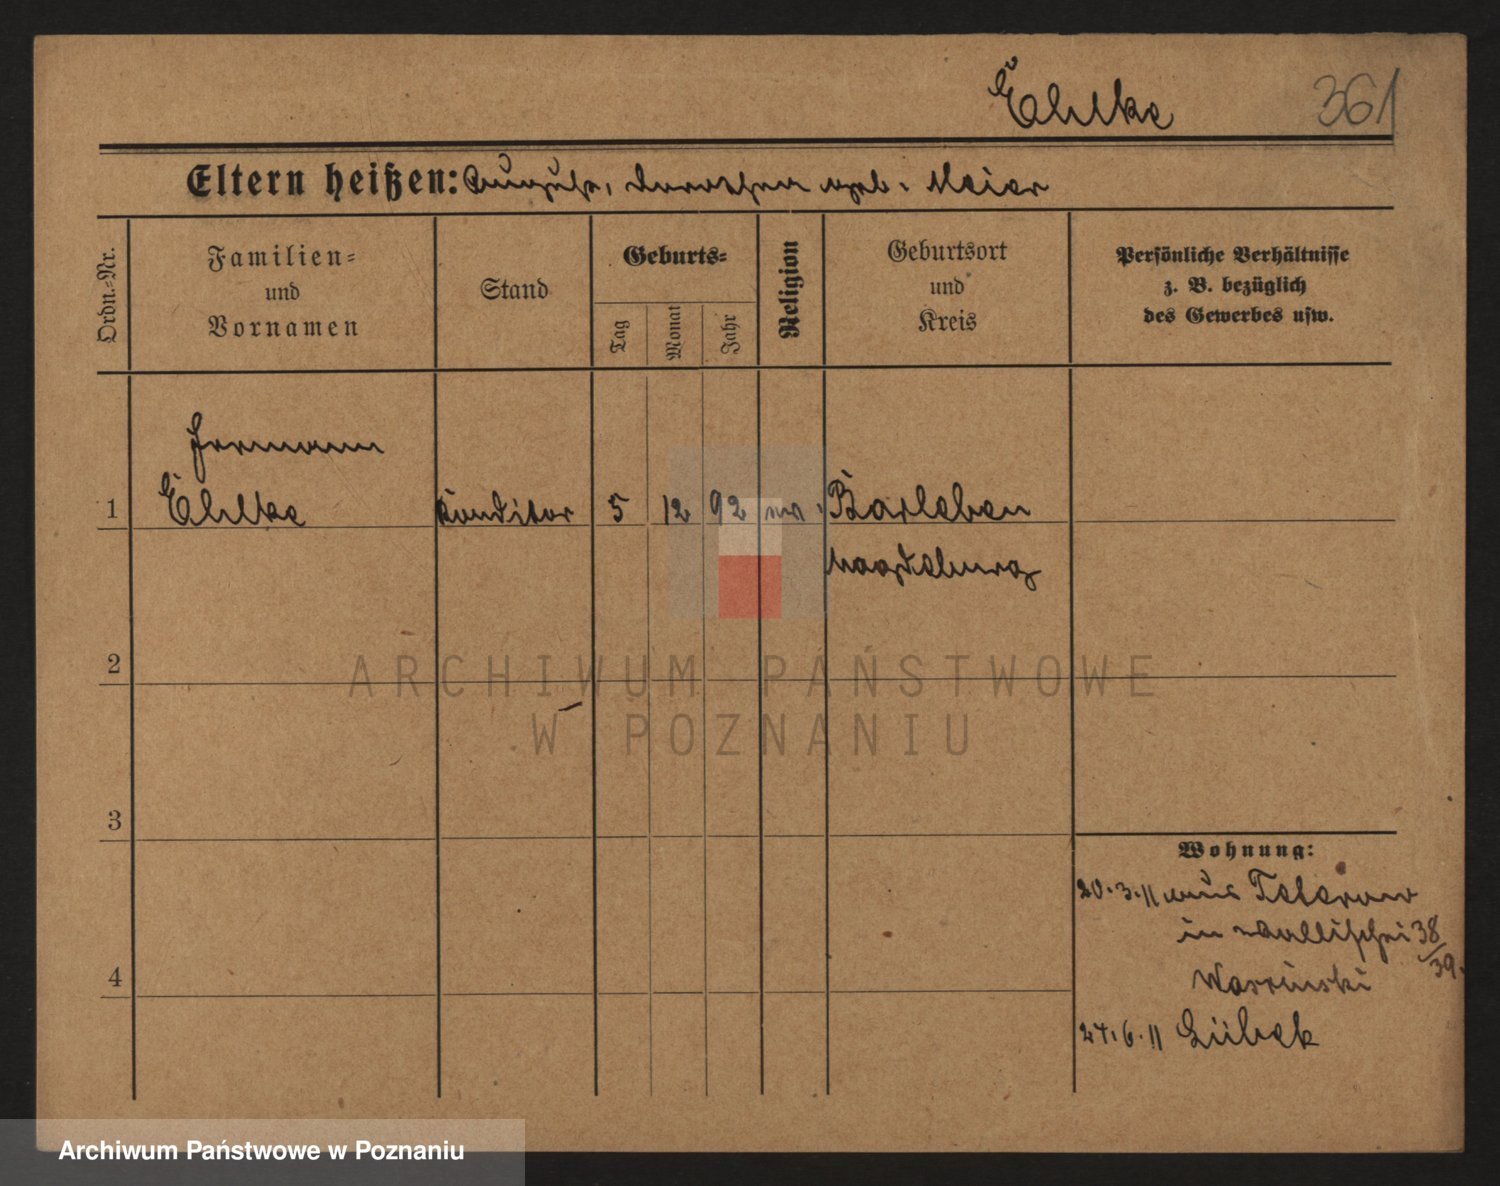 Ehlke
361
Eltern heißen: August, Dorothea geb. Meier
Ordn.-Nr.
Familien-
und
Vornamen
Stand
Geburts-
Tag
Monat
Jahr
Religion
Geburtsort
und
Kreis
Persönliche Verhältnisse
z. B. bezüglich
des Gewerbes usw.
Hermann
1 Ehlke Konditor 5 12 92 Barleben
Magdeburg
2
ARCHIWUM PAŃSTWOWE
W POZNANIU
3
Wohnung:
20.3.11 aus Teterow
in Wallischei 38/39.
4
24.6.11 Lübek
Archiwum Państwowe w Poznaniu